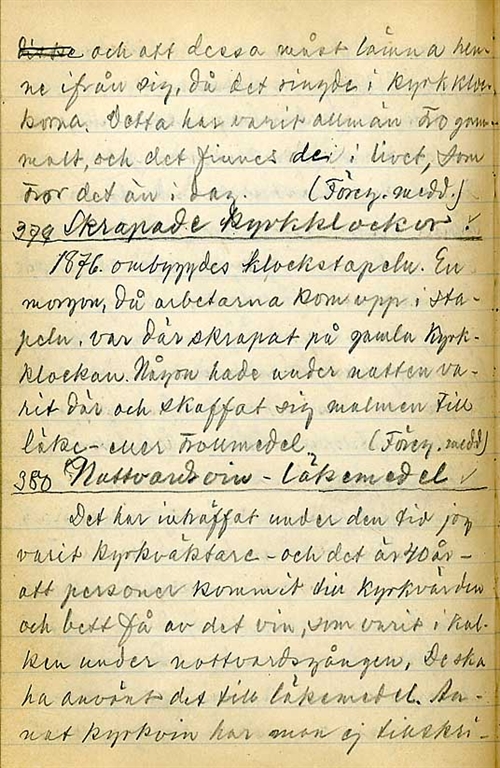 och att dessa måst lämna hen-
ne ifrån sig, då det ringde i kyrkkloc-
korna. Detta har varit allmän tro gam-
malt, och det finnes de i livet, som
tror det än i dag. (Föreg. medd.)
379 Skrapade kyrkklockor. ✓
1876. ombyggdes klockstapeln. En
morgon, då arbetarna kom upp i sta-
peln, var där skrapat på gamla kyrk-
klockan. Någon hade under natten va-
rit där och skaffat sig malmen till
läke- eller trollmedel (Föreg. medd)
380 Nattvardsvin - läkemedel ✓
Det har inträffat under den tid jag
varit kyrkväktare - och det är 40 år -
att personer kommit till kyrkvärden
och bett få av det vin, som varit i kal-
ken under nattvardsgången. De ska
ha använt det till läkemedel. An-
nat kyrkvin har man ej tillskri-